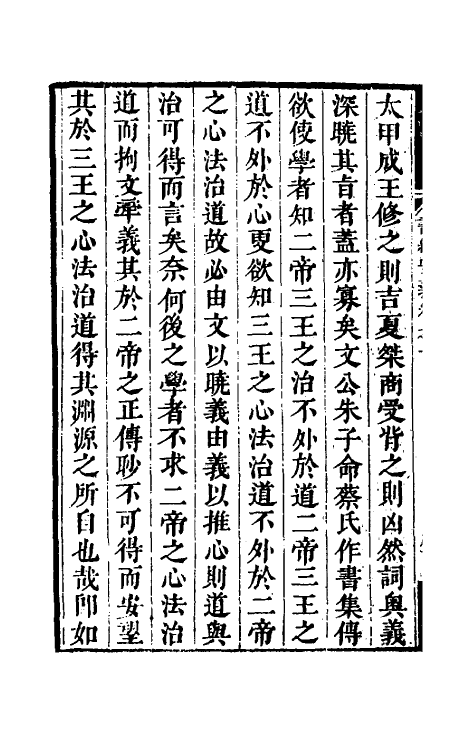 太甲成王修之則吉夏桀商受背之則凶然詞奥義
深曉其旨者蓋亦寡矣文公朱子命蔡氏作書集傳
欲使學者知二帝三王之治不外於道二帝三王之
道不外於心更欲知三王之心法治道不外於二帝
之心法治道故必由文以曉義由義以推心則道與
治可得而言矣奈何後之學者不求二帝之心法治
道而拘文牽義其於二帝之正傳眇不可得而安望
其於三王之心法治道得其淵源之所自也哉卽如